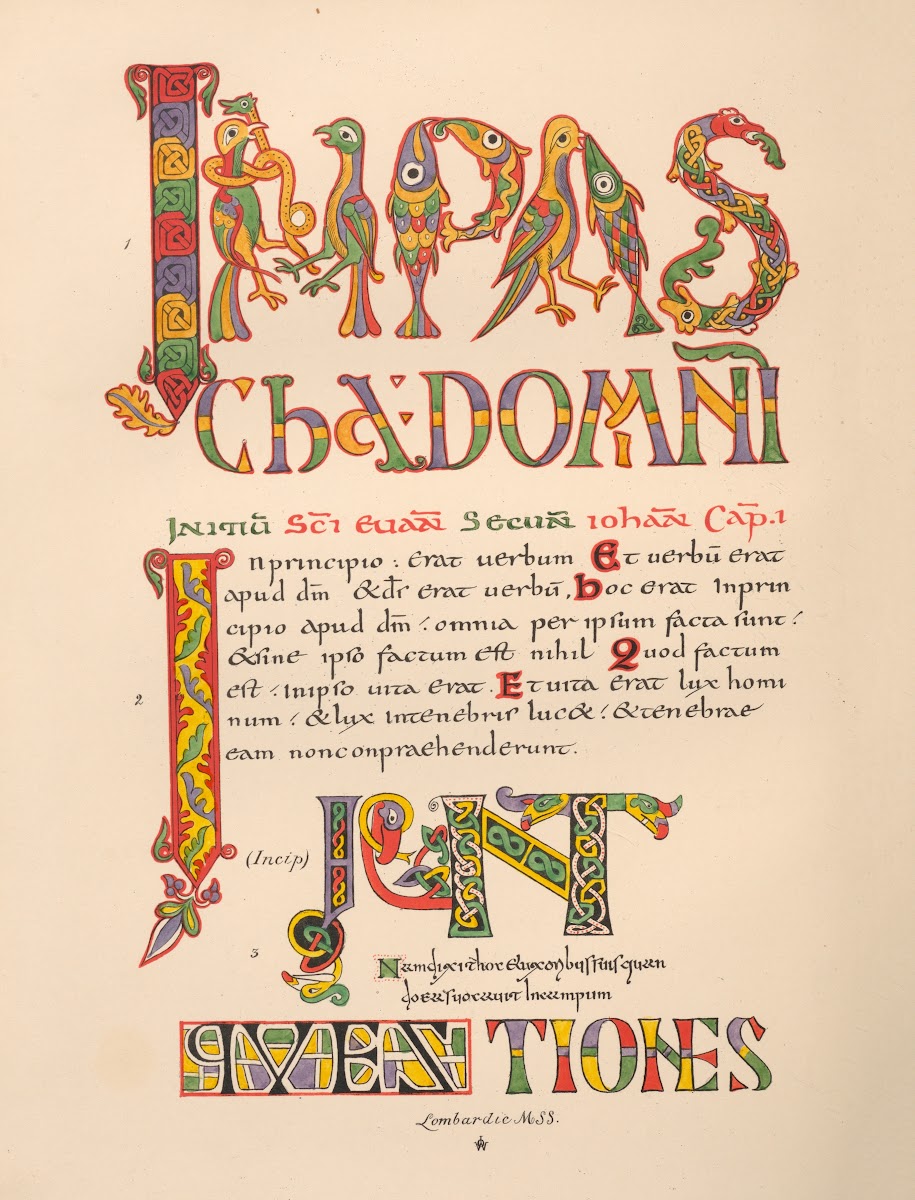 1
IN PAS
Cha DOMNī
INITIū SC̄I EUAN̄ SECUN̄ IOHAN̄ CAP̄.I
2
In principio : erat uerbum Et uerbū erat
apud dm̄ &dr̄ erat uerbū, hoc erat Inprin
cipio apud dm̄ : omnia per ipsum facta sunt :
&sine ipso factum est nihil Quod factum
est : inipso uita erat. Et uita erat lux homi
num : & lux intenebris luc& : & tenebrae
eam nonconpraehenderunt.
(Incip)
3
Nam dixit hoc
Incampum
QUAES
TIONES
Lombardic MSS.